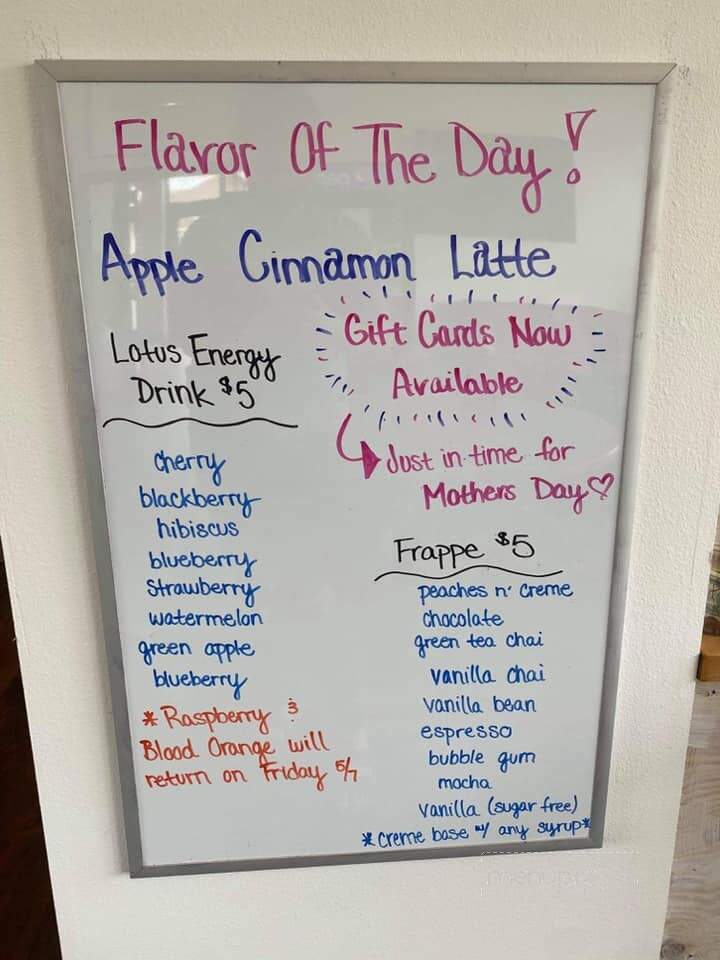 Flavor Of The Day!
Apple Cinnamon Latte
Lotus Energy
Drink $5
cherry
blackberry
hibiscus
blueberry
strawberry
watermelon
green apple
blueberry
*Raspberry &
Blood Orange will
return on Friday 5/7
Gift Cards Now
Available
Just in time for
Mothers Day♡
Frappe $5
peaches n' creme
chocolate
green tea chai
vanilla chai
vanilla bean
espresso
bubble gum
mocha
vanilla (sugar free)
*creme base w/ any syrup*